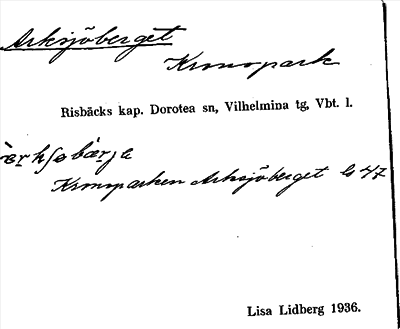 Arksjöberget
Kronopark
Risbäcks kap. Dorotea sn, Vilhelmina tg, Vbt. l.
Kronoparken Arksjöberget ls 47
Lisa Lidberg 1936.